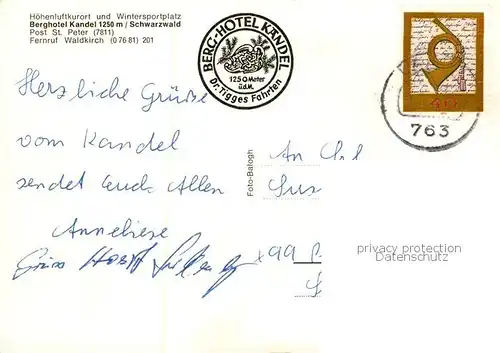 Höhenluftkurort und Wintersportplatz
Berghotel Kandel 1250 m / Schwarzwald
Post St. Peter (7811)
Fernruf Waldkirch (0 76 81) 201
BERG-HOTEL KANDEL
1250 Meter
ü.d.M.
Dr. Tigges Fahrten
40
763
Herzliche Grüße
vom Kandel
sendet Euch Allen
Anneliese
Gruss Horst
Foto-Balogh
An
privacy protection
Datenschutz